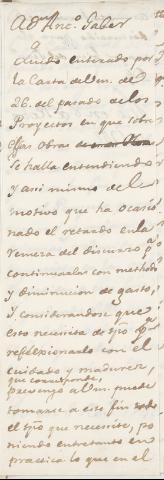 A Dn. Franco. Saber
Quedo enterado por
la Carta de Vm. de
26. del pasado de los
Proyectos en que sobre
essas Obras
se halla entendiendo
y assi mismo de el
motivo que ha ocasio
nado el retardo en la
remesa del discurso pa.
continuarlas con methodo
y diminucion de gasto,
y considerandose que
esto necesita de tpo. pa.
reflexionarlo con el
cuidado y madurez,
que corresponde,
prevengo a Vm. puede
tomarse a este fin todo
el tpo. que necesite, po
niendo entretanto en
practica lo que en el